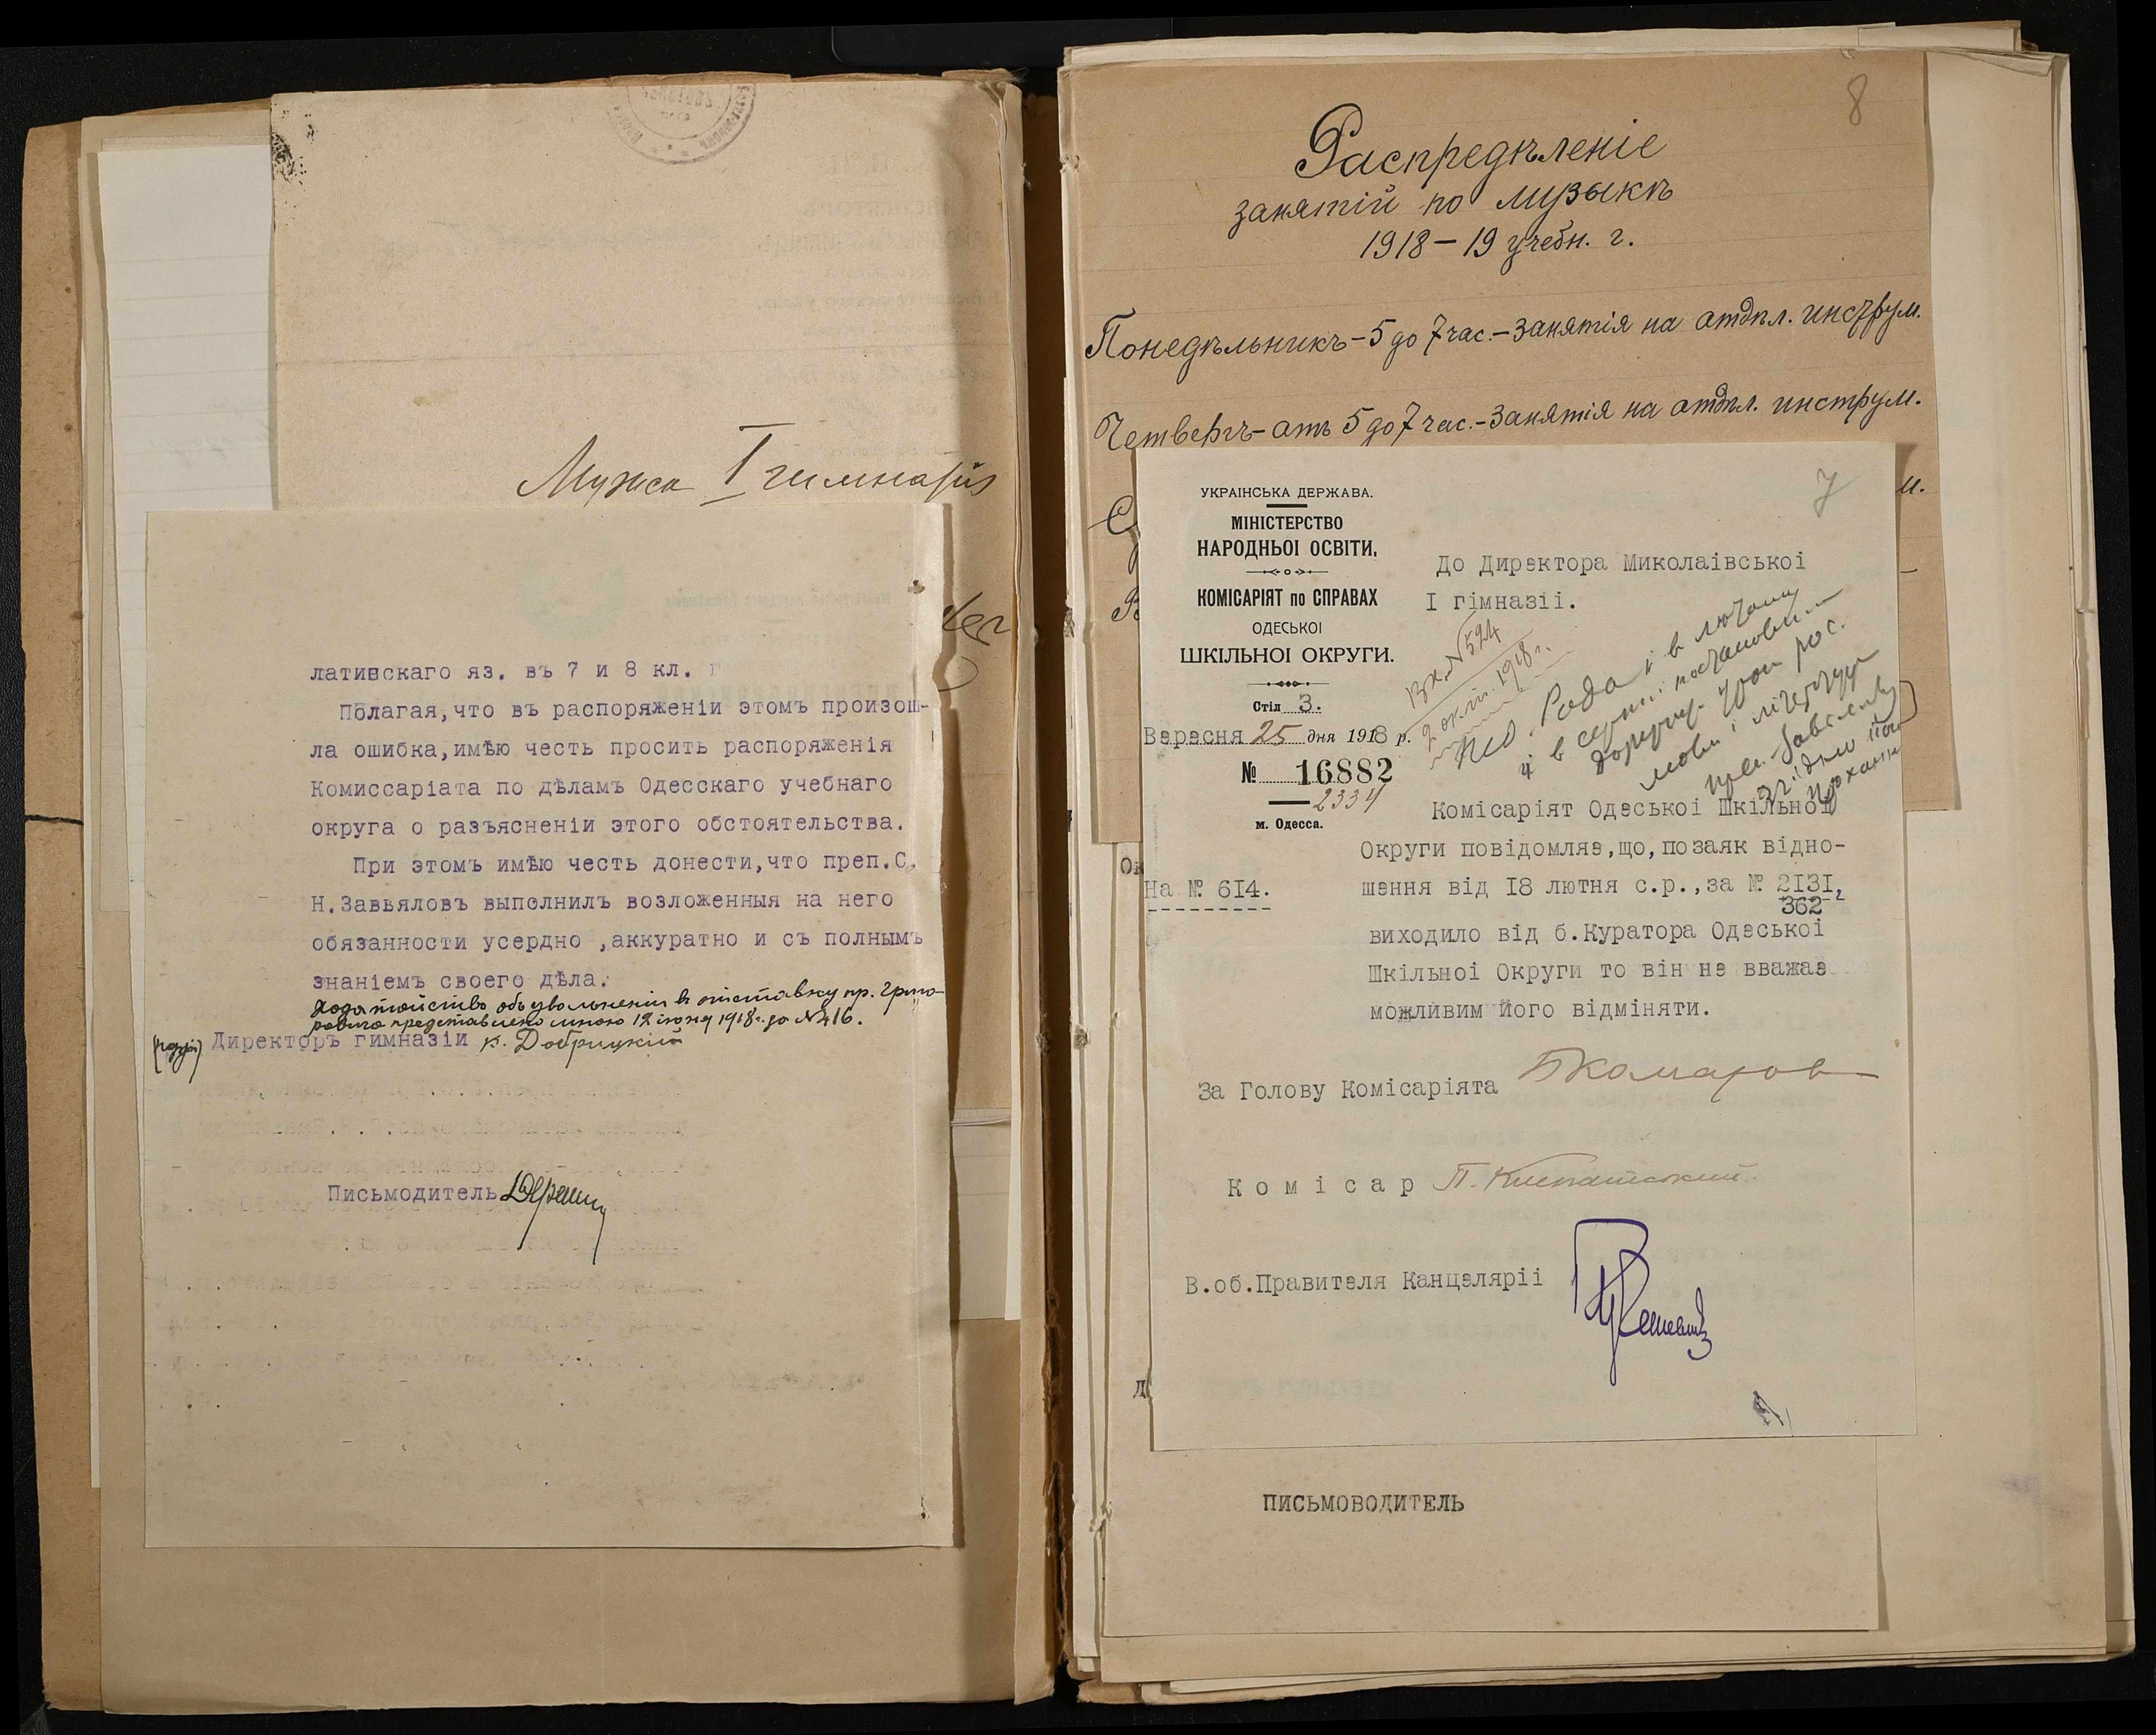 Мужск I гимназія
латинскаго яз. въ 7 и 8 кл.
Полагая,что въ распоряженіи этомъ произош-
ла ошибка,имѣю честь просить распоряженія
Комиссаріата по дѣламъ Одесскаго учебнаго
округа о разъясненіи этого обстоятельства.
При этомъ имѣю честь донести,что преп.С.
Н.Завьяловъ выполнилъ возложенныя на него
обязанности усердно ,аккуратно и съ полнымъ
знаніемъ своего дѣла.
Ходатайство объ увольненіи въ отставку пр. Григо-
ровича представлено мною 12 іюня 1918 г. за № 416.
Директоръ гимназіи К. Добрицкій
Письмодитель
8
Распредѣленіе
занятій по музыкѣ
1918–19 учебн. г.
Понедѣльникъ – 5 до 7 час. – Занятія на отдѣл. инструм.
Четвергъ – отъ 5 до 7 час. – Занятія на отдѣл. инструм.
С
м.
7
УКРАІНСЬКА ДЕРЖАВА.
МІНІСТЕРСТВО
НАРОДНЬОІ ОСВІТИ.
КОМІСАРІЯТ по СПРАВАХ
ОДЕСЬКОІ
ШКІЛЬНОІ ОКРУГИ.
Стіл 3.
Вересня 25 дня 1918 р.
№ 16882
2334
м. Одесса.
На № 614.
До Директора Миколаівськоі
I гімназіі.
Вх. № 524
2 окт. 1918 г.
Пед. Рада і в лютому
й в серпні постановили
доручити уроки рос.
мови і літератури
преп. Завьялову
згідно його
прохання
Комісаріят Одеськоі Шкільноі
Округи повідомляе,що,позаяк відно-
шення від 18 лютня с.р.,за № 2131,
362
виходило від б.Куратора Одеськоі
Шкільноі Округи то він не вважае
можливим його відміняти.
За Голову Комісаріята Б Комаров
Комісар
В.об.Правителя Канцеляріі
Д
ПИСЬМОВОДИТЕЛЬ